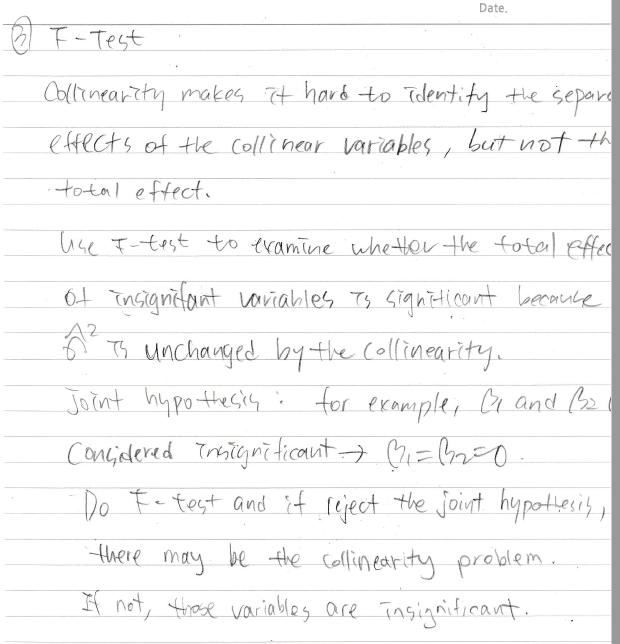 Date.
③ F-Test
Collinearity makes it hard to identify the separa
effects of the collinear variables, but not th
total effect.
Use F-test to examine whether the total effec
of insignifant variables is significant because
σ̂² is unchanged by the collinearity.
Joint hypothesis : for example, β1 and β2
Considered insignificant → β1=β2=0.
Do F-test and if reject the joint hypothesis,
there may be the collinearity problem.
If not, those variables are insignificant.